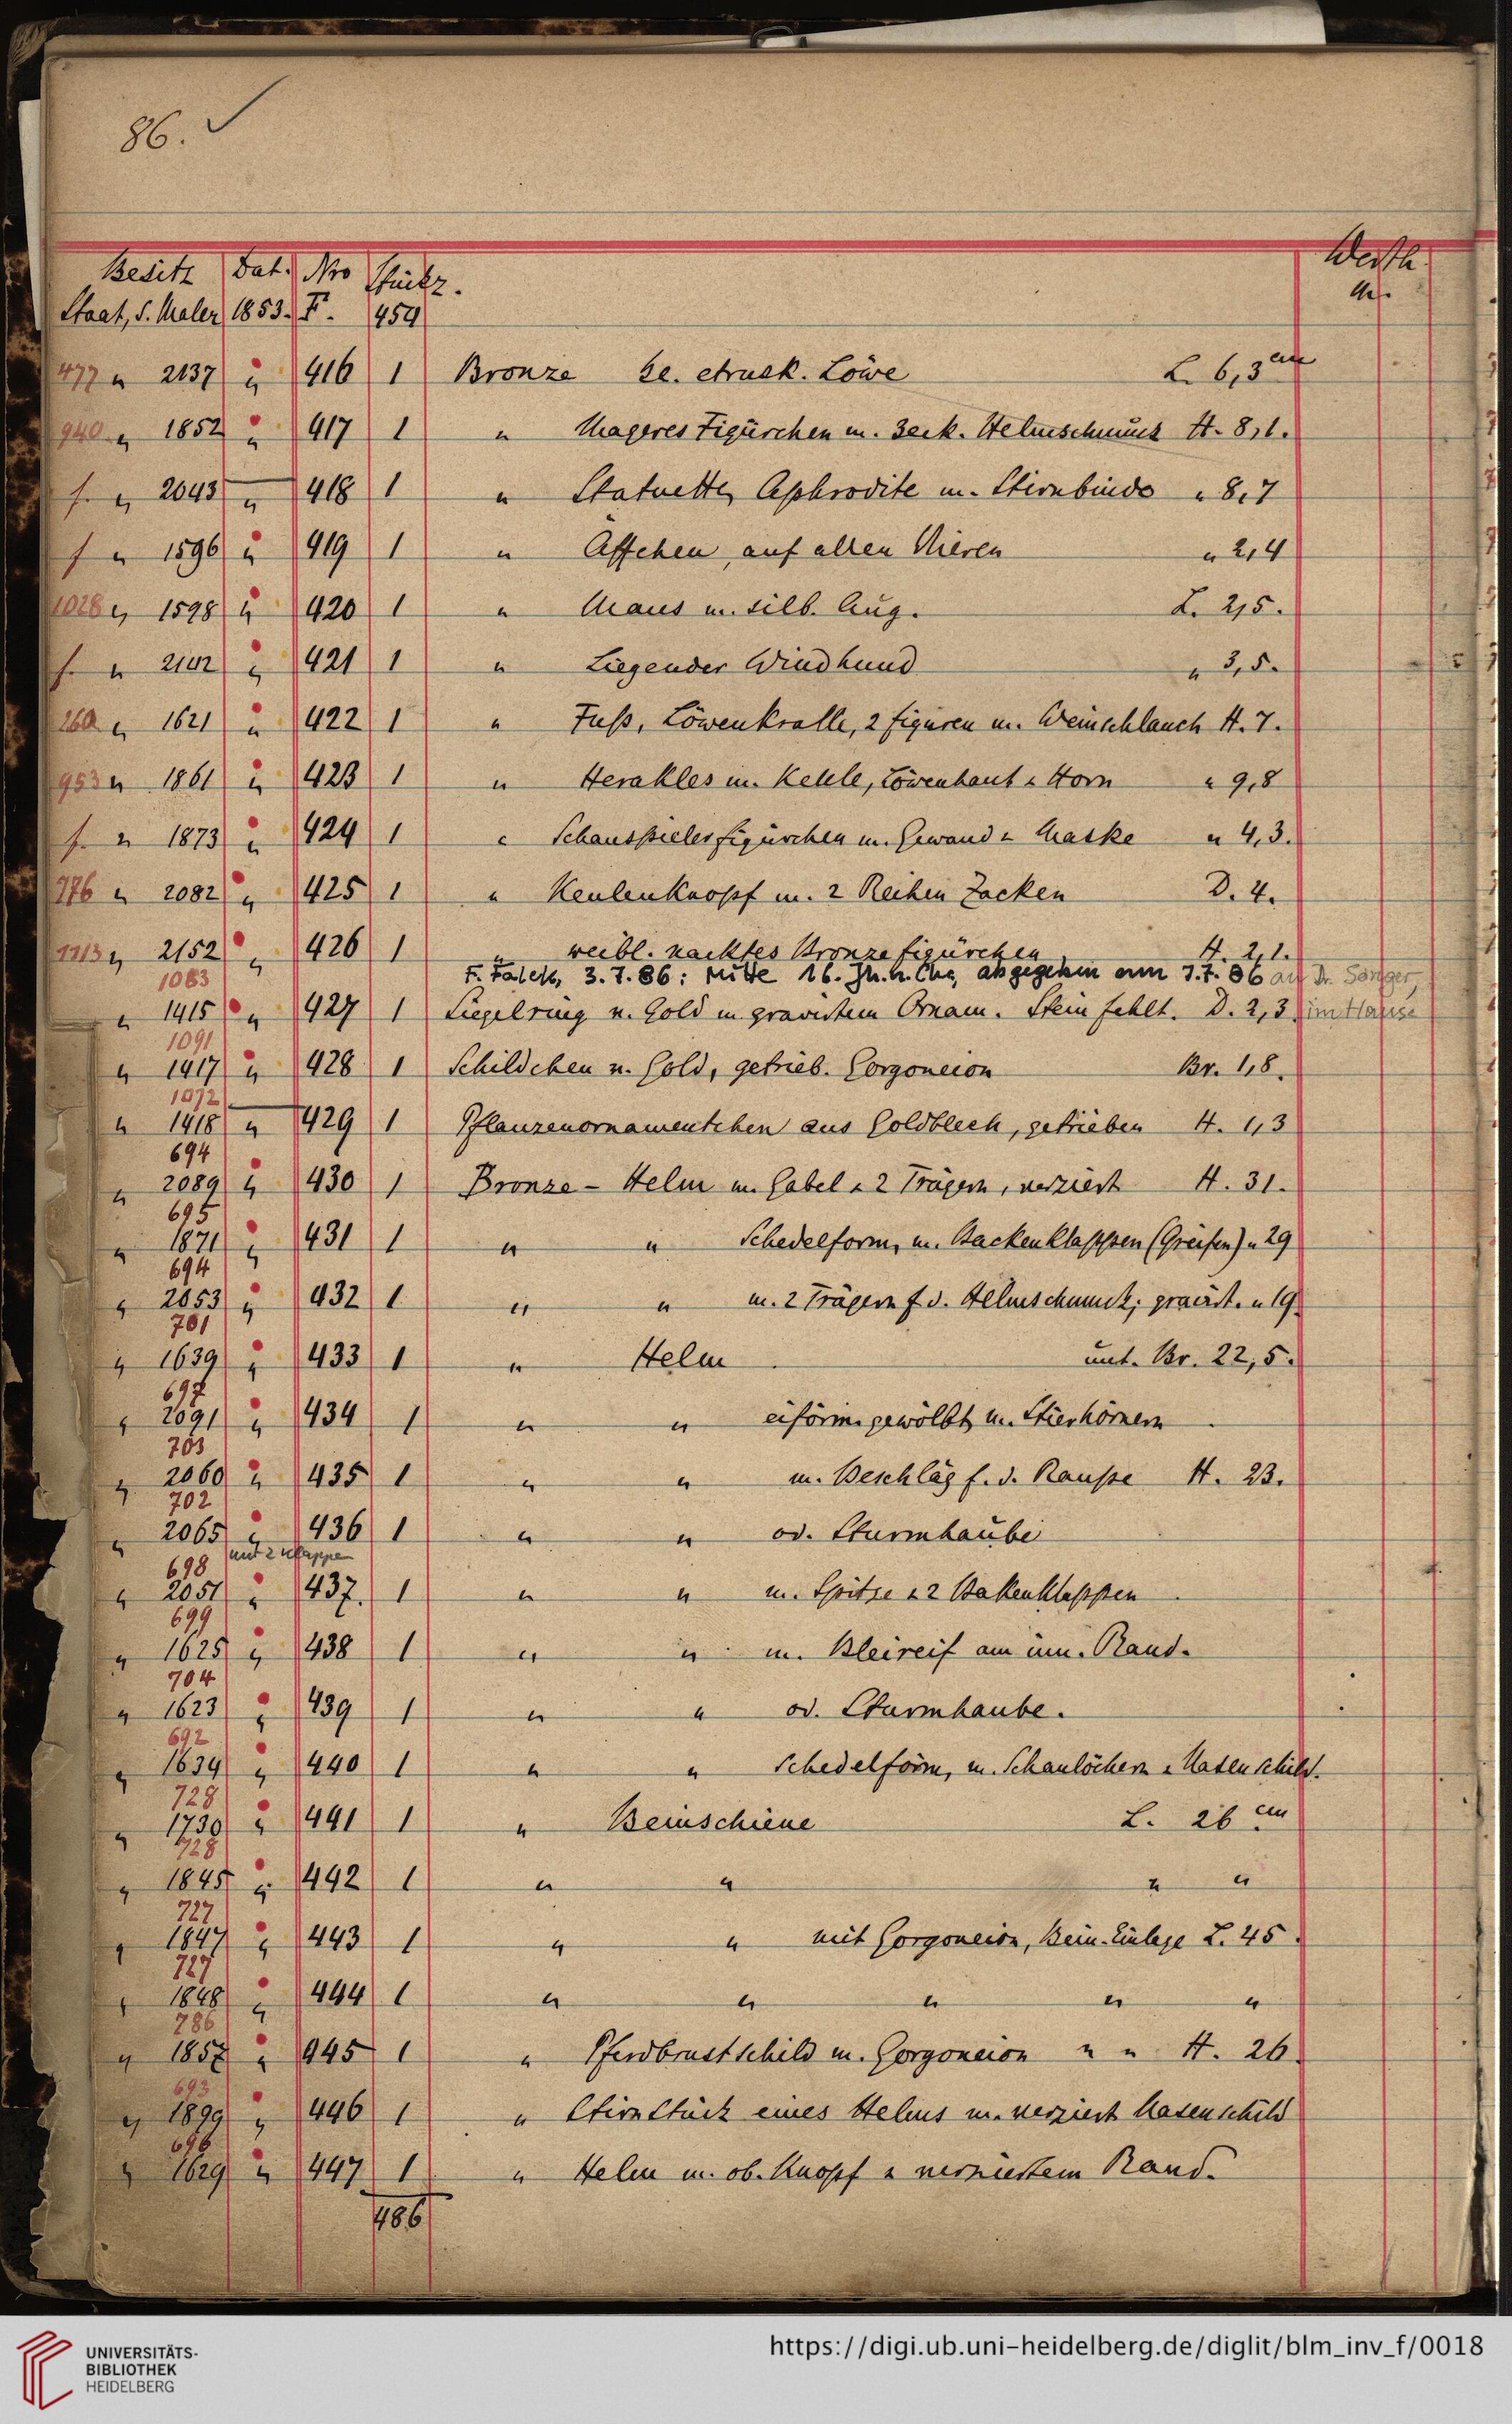 86. ✓
Besitz Dat. Nro Stückz. Werth
Staat, s. Maler 1853. F. 454 M.
477 " 2137 " 416 1 Bronze kl. etrusk. Löwe L. 6,3 cm
940 " 1852 " 417 1 " Mageres Figürchen m. 3eck. Helmschmuck H. 8,1.
f. " 2043 " 418 1 " Statuette, Aphrodite m. Stirnbinde " 8,7
f " 1596 " 419 1 " Äffchen, auf allen Vieren " 2,4
1028 " 1598 " 420 1 " Maus m. silb. Aug. L. 2,5.
f. " 2142 " 421 1 " Liegender Windhund " 3,5.
260 " 1621 " 422 1 " Fuß, Löwenkralle, 2 figuren m. Weinschlauch H. 7.
953 " 1861 " 423 1 " Herakles m. Keule, Löwenhaut u Horn " 9,8
f. " 1873 " 424 1 " Schauspielerfigürchen m. Gewand u Maske " 4,3.
776 " 2082 " 425 1 " Keulenknopf m. 2 Reihen Zacken D. 4.
1113 " 2152 " 426 1 " weibl. nacktes Bronzefigürchen H. 2,1.
F. Falck, 3.7.86: Mitte 16. Jh. n. Chr., abgegeben am 7.7.86 an Dr. Sänger,
1083
" 1415 " 427 1 Siegelring v. Gold m graviertem Ornam. Stein fehlt. D. 2,3 im Hause
1091
" 1417 " 428 1 Schildchen v. Gold, getrieb. Gorgoneion Br. 1,8.
1072
" 1418 " 429 1 Pflanzenornamentchen aus Goldblech, getrieben H. 1,3
694
" 2089 " 430 1 Bronze - Helm m. Gabel u 2 Trägern, verziert H. 31.
695
" 1871 " 431 1 " " Schedelform, m. Backenklappen (Greifen) " 29
694
" 2053 " 432 1 " " m. 2 Trägern f d. Helmschmuck; graviert. " 19
701
" 1639 " 433 1 " Helm unt. Br. 22,5.
697
" 2091 " 434 1 " " eiförm. gewölbt, m. Stierhörnern
703
" 2060 " 435 1 " " m. Beschläg f. d. Raupe H. 23.
702
" 2065 " 436 1 " " od. Sturmhaube
698 mit 2 Klappen
" 2051 " 437. 1 " " m. Spitze u 2 Bakenklappen
699
" 1625 " 438 1 " " m. Bleireif am inn. Rand.
704
" 1623 " 439 1 " " od. Sturmhaube.
692
" 1634 " 440 1 " " Schedelform, m. Schaulöchern u Nasenschild.
728
" 1730 " 441 1 " Beinschiene L. 26 cm
728
" 1845 " 442 1 " " " "
727
" 1847 " 443 1 " " mit Gorgoneion, Bein-Einlage L. 45.
727
" 1848 " 444 1 " " " " "
786
" 1857 " 445 1 " Pferdbrustschild m. Gorgoneion " " H. 26
693
" 1899 " 446 1 " Stirnstück eines Helms m. verziert Nasenschild
696
" 1629 " 447 1 " Helm m. ob. Knopf u verziertem Rand.
486
UNIVERSITÄTS-
BIBLIOTHEK
HEIDELBERG
https://digi.ub.uni-heidelberg.de/diglit/blm_inv_f/0018